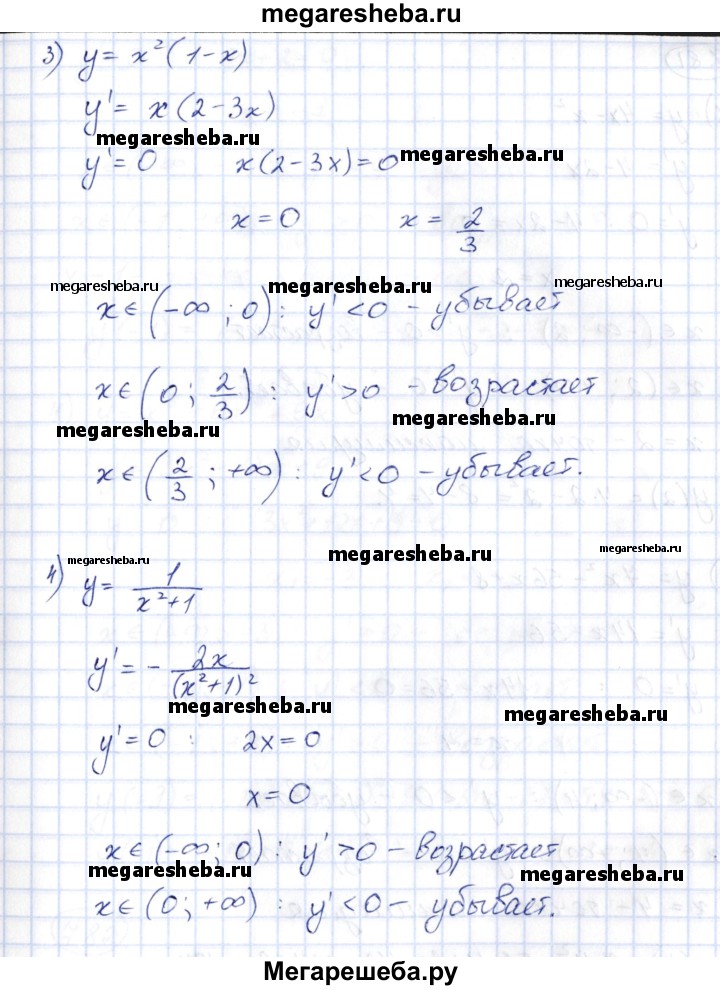 megaresheba.ru
3) y = x²(1-x)
y' = x(2-3x)
megaresheba.ru
y' = 0 x(2-3x)=0 megaresheba.ru
x = 0 x = 2/3
megaresheba.ru megaresheba.ru megaresheba.ru
x∈(-∞; 0): y'<0 - убывает
x∈(0; 2/3): y'>0 - возрастает
megaresheba.ru megaresheba.ru
x∈(2/3; +∞): y'<0 - убывает.
megaresheba.ru megaresheba.ru megaresheba.ru
4) y = 1/(x²+1)
y' = - 2x/(x²+1)²
megaresheba.ru megaresheba.ru
y'=0 : 2x=0
x=0
x∈(-∞; 0): y'>0 - возрастает
megaresheba.ru megaresheba.ru
x∈(0; +∞): y'<0 - убывает.
Мегарешеба.ру